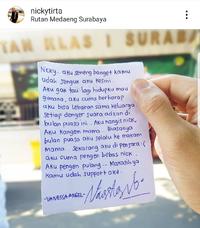 nickytirta
Rutan Medaeng Surabaya
RUTAN KLAS I SURABA
Nicky.. aku seneng banget kamu
udah jenguk aku kesini.
Aku gak tau lagi hidupku mau
gimana, aku cuma berharap
aku bisa lebaran sama keluarga
Setiap denger suara adzan di
bulan puasa ini.. Aku nangis nick,
Aku kangen mama. Biasanya
bulan puasa aku selalu ke makam
mama. Sekarang aku di penjara :(
Aku cuma pengen bebas nick..
Aku pengen pulang... Makasih ya
kamu udah support aku..
-VANESSA ANGEL-